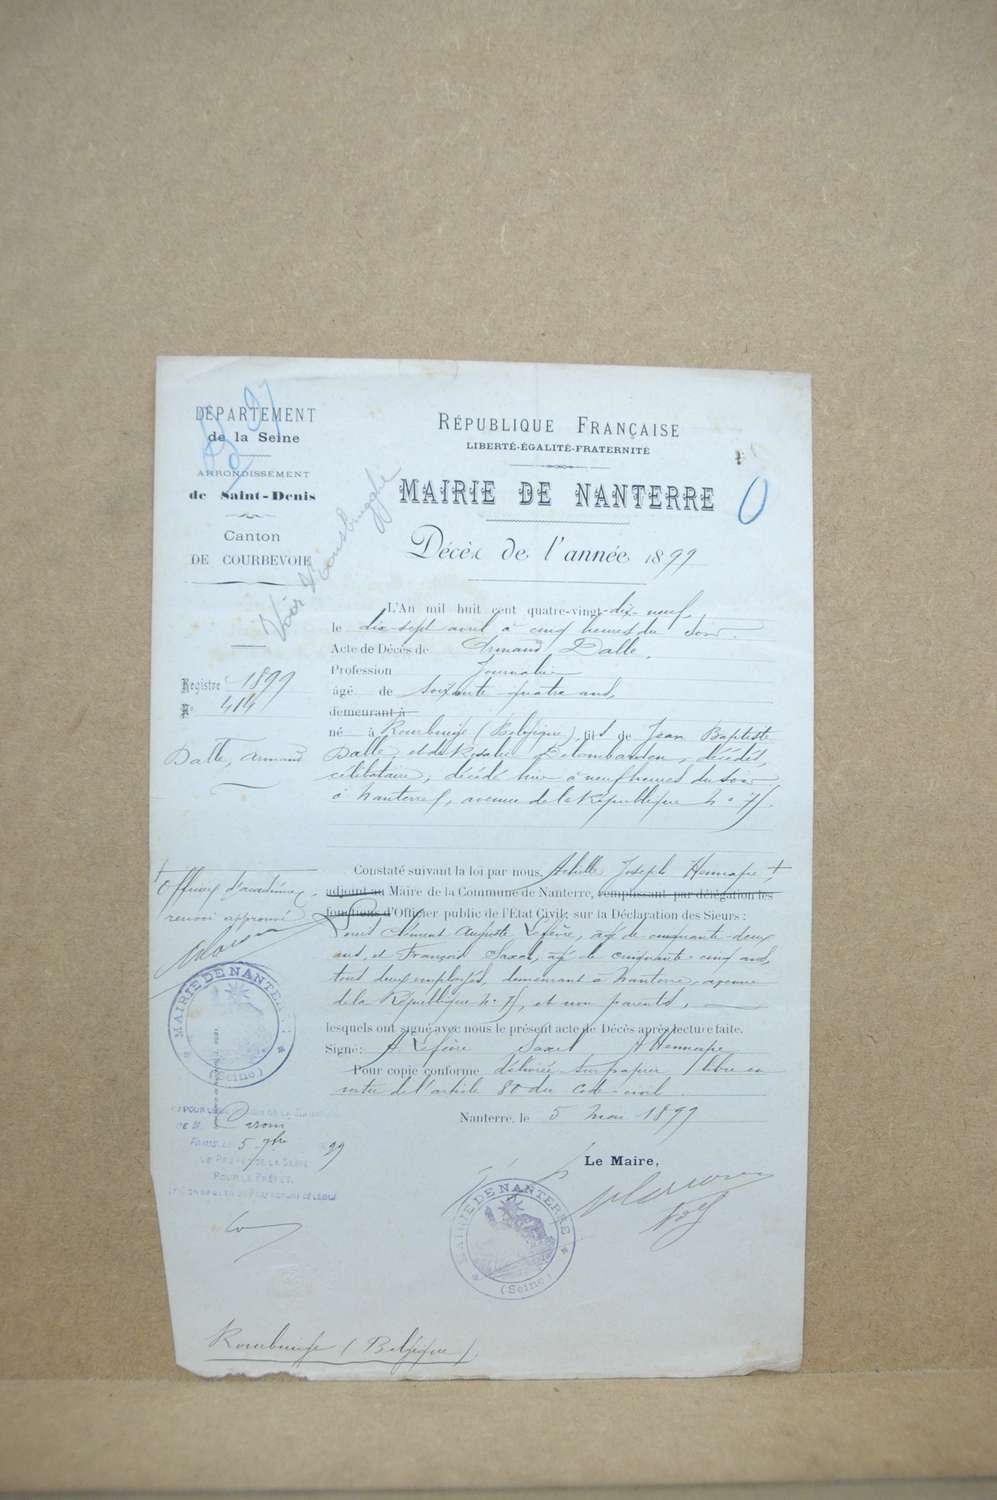 DÉPARTEMENT
de la Seine
ARRONDISSEMENT
de Saint-Denis
Canton
DE COURBEVOIE
RÉPUBLIQUE FRANÇAISE
LIBERTÉ-ÉGALITÉ-FRATERNITÉ
MAIRIE DE NANTERRE
0
Décès de l'année 1899
Voir
Registre 1899
N° 414
Dalle, Armand
L'An mil huit cent quatre-vingt-dix-neuf,
le dix-sept avril à cinq heures du soir.
Acte de Décès de Armand Dalle,
Profession Journalier
âgé de soixante quatre ans,
demeurant à
né à (Belgique), fils de Jean Baptiste
Dalle, et de Rosalie décédés,
célibataire, décédé hier à neuf heures du soir
à Nanterre, avenue de la République N°
Constaté suivant la loi par nous, Achille Joseph Hennape +,
adjoint au Maire de la Commune de Nanterre, remplissant par délégation les
fonctions d'Officier public de l'État Civil; sur la Déclaration des Sieurs :
Louis Clément Auguste Lefèvre, âgé de cinquante-deux
ans, et François Saxel, âgé de cinquante cinq ans,
tous deux employés, demeurant à Nanterre, avenue
de la République N° et non parents,
lesquels ont signé avec nous le présent acte de Décès après lecture faite.
Signé: A. Lefèvre Saxel A Hennape
Pour copie conforme délivrée sur papier libre en
vertu de l'article 80 du Code civil
Nanterre, le 5 Mai 1899
Le Maire,
+ Officier d'académie,
renvoi approuvé
MAIRIE DE NANTERRE
(Seine)
PARIS, LE 5 99
LE PRÉFET DE LA SEINE
POUR LE PRÉFET,
MAIRIE DE NANTERRE
(Seine)
(Belgique)